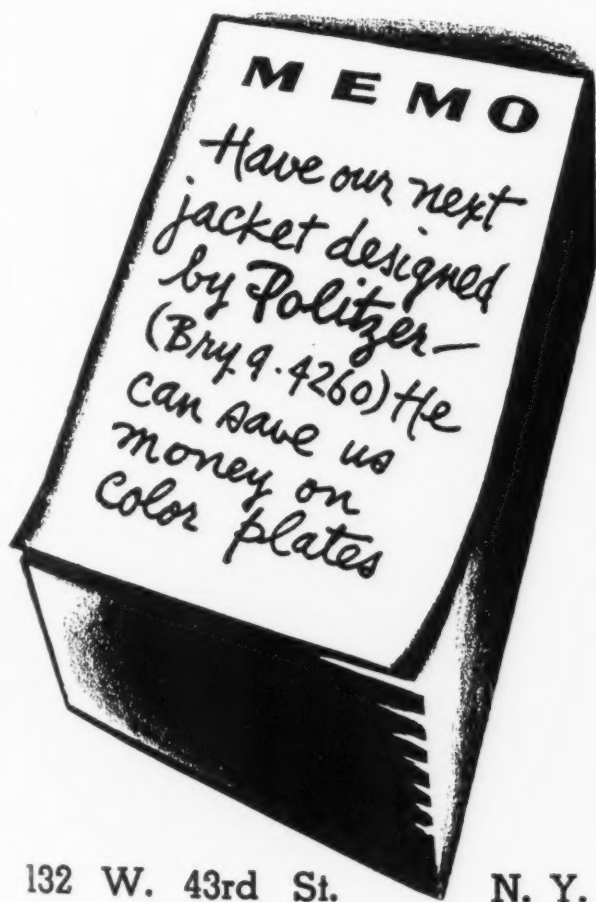 MEMO
Have our next
jacket designed
by Politzer—
(Bry 9·4260) He
can save us
money on
color plates
132 W. 43rd St. N. Y.